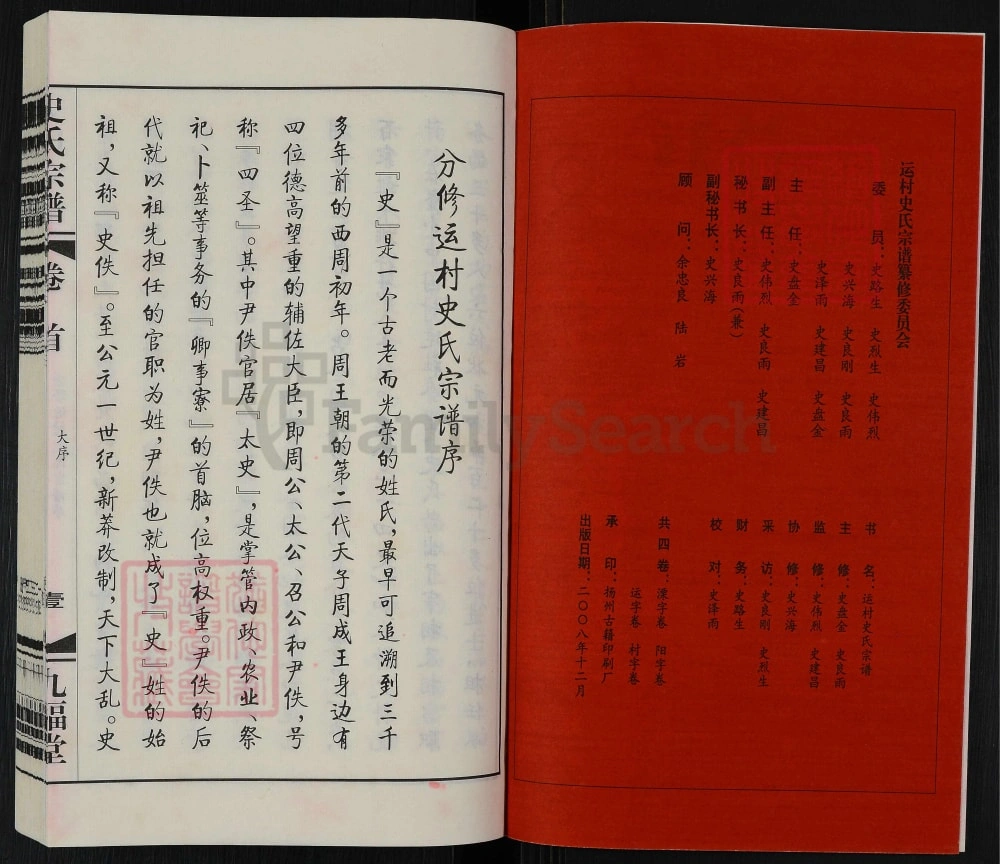 运村史氏宗谱纂修委员会
委员：史路生 史烈生 史伟烈
史兴海 史良刚 史良雨
史泽雨 史建昌 史盘金
主任：史盘金
副主任：史伟烈 史良雨 史建昌
秘书长：史良雨（兼）
副秘书长：史兴海
顾问：余忠良 陆岩
书名：运村史氏宗谱
主修：史盘金 史良雨
监修：史伟烈 史建昌
协修：史兴海
采访：史良刚 史烈生
财务：史路生
校对：史泽雨
共四卷：溧字卷 阳字卷
运字卷 村字卷
承印：扬州古籍印刷厂
出版日期：二〇〇八年十二月
分修运村史氏宗谱序
『史』是一个古老而光荣的姓氏，最早可追溯到三千
多年前的西周初年。周王朝的第二代天子周成王身边有
四位德高望重的辅佐大臣，即周公、太公、召公和尹佚，号
称『四圣』。其中尹佚官居『太史』，是掌管内政、农业、祭
祀、卜筮等事务的『卿事寮』的首脑，位高权重。尹佚的后
代就以祖先担任的官职为姓，尹佚也就成了『史』姓的始
祖，又称『史佚』。至公元一世纪，新莽改制，天下大乱。史
史氏宗谱 卷首 大序 壹 九福堂
FamilySearch